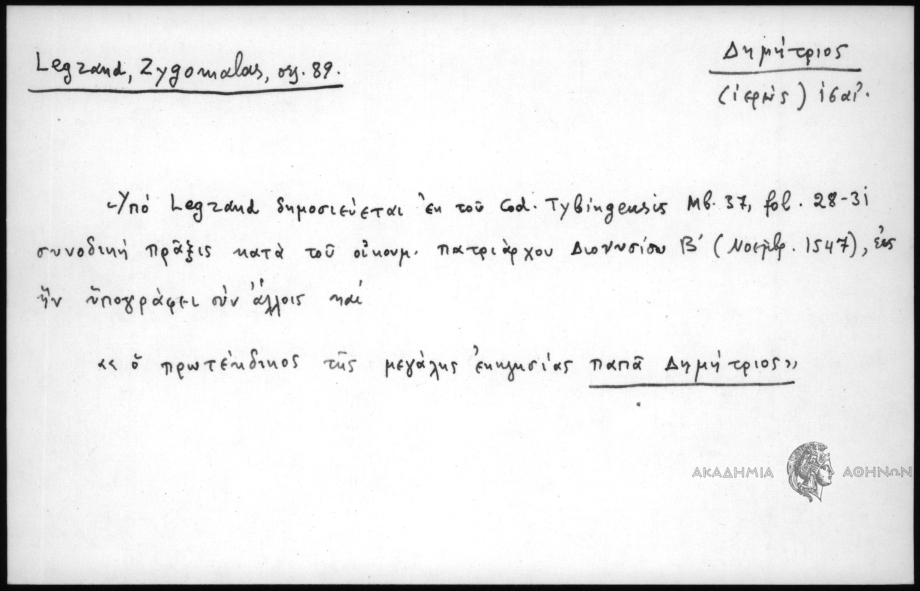 Legrand, Zygomalas, σς. 89.
Δημήτριος
(ἱερεὺς) ιϛαί.
Ὑπό Legrand δημοσιεύεται ἐκ τοῦ Cod. Tybingensis Mb. 37, fol. 28-31
συνοδική πρᾶξις κατά τοῦ οἰκουμ. πατριάρχου Διονυσίου Β' (Νοεμβρ. 1547),
ἥν ὑπογράφει σύν ἄλλοις καί
«ὁ πρωτέκδικος τῆς μεγάλης ἐκκλησίας παπᾶ Δημήτριος»
ΑΚΑΔΗΜΙΑ ΑΘΗΝΩΝ